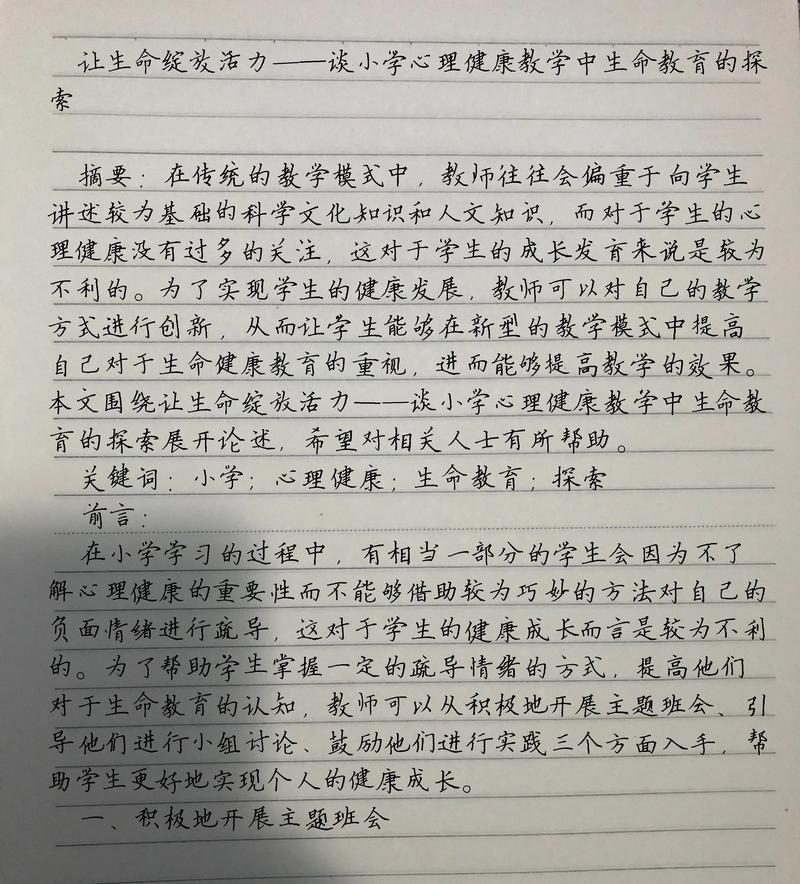 让生命绽放活力——谈小学心理健康教学中生命教育的探
索
摘要：在传统的教学模式中，教师往往会偏重于向学生
讲述较为基础的科学文化知识和人文知识，而对于学生的心
理健康没有过多的关注，这对于学生的成长发育来说是较为
不利的。为了实现学生的健康发展，教师可以对自己的教学
方式进行创新，从而让学生能够在新型的教学模式中提高
自己对于生命健康教育的重视，进而能够提高教学的效果。
本文围绕让生命绽放活力——谈小学心理健康教学中生命教
育的探索展开论述，希望对相关人士有所帮助。
关键词：小学；心理健康；生命教育；探索
前言：
在小学学习的过程中，有相当一部分的学生会因为不了
解心理健康的重要性而不能够借助较为巧妙的方法对自己的
负面情绪进行疏导，这对于学生的健康成长而言是较为不利
的。为了帮助学生掌握一定的疏导情绪的方式，提高他们
对于生命教育的认知，教师可以从积极地开展主题班会、引
导他们进行小组讨论、鼓励他们进行实践三个方面入手，帮
助学生更好地实现个人的健康成长。
一、积极地开展主题班会